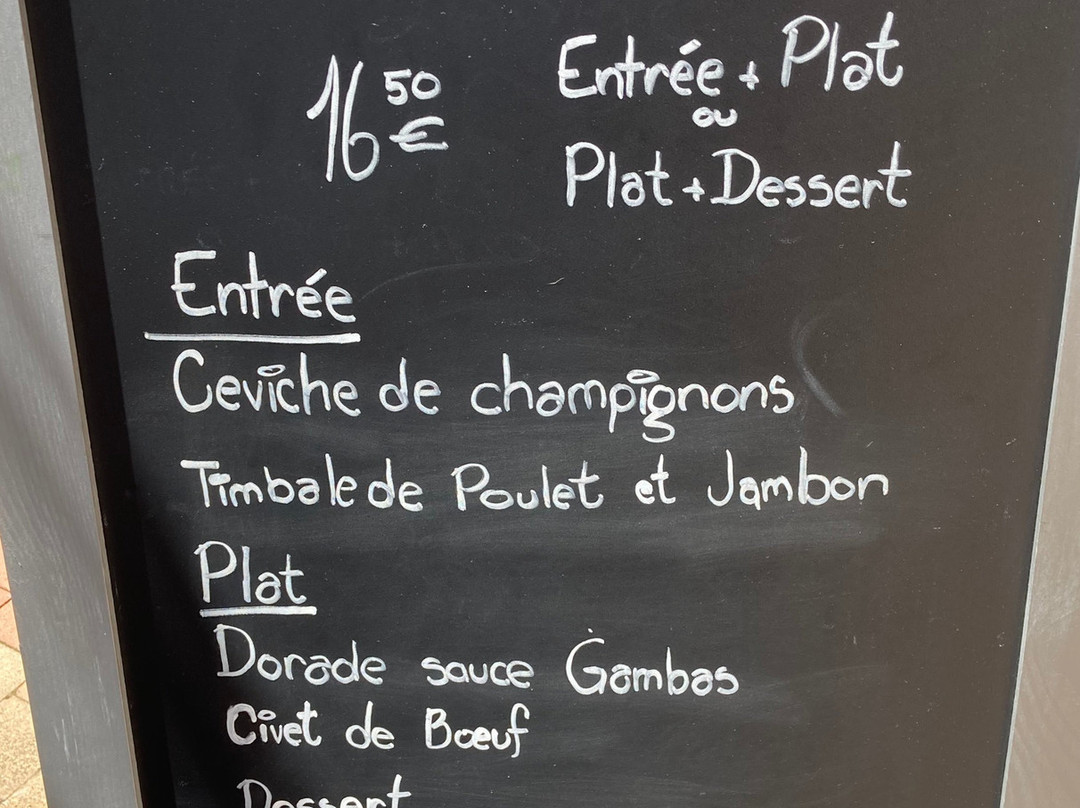 16 50 € Entrée + Plat
ou
Plat + Dessert
Entrée
Ceviche de champignons
Timbale de Poulet et Jambon
Plat
Dorade sauce Gambas
Civet de Bœuf
Dessert